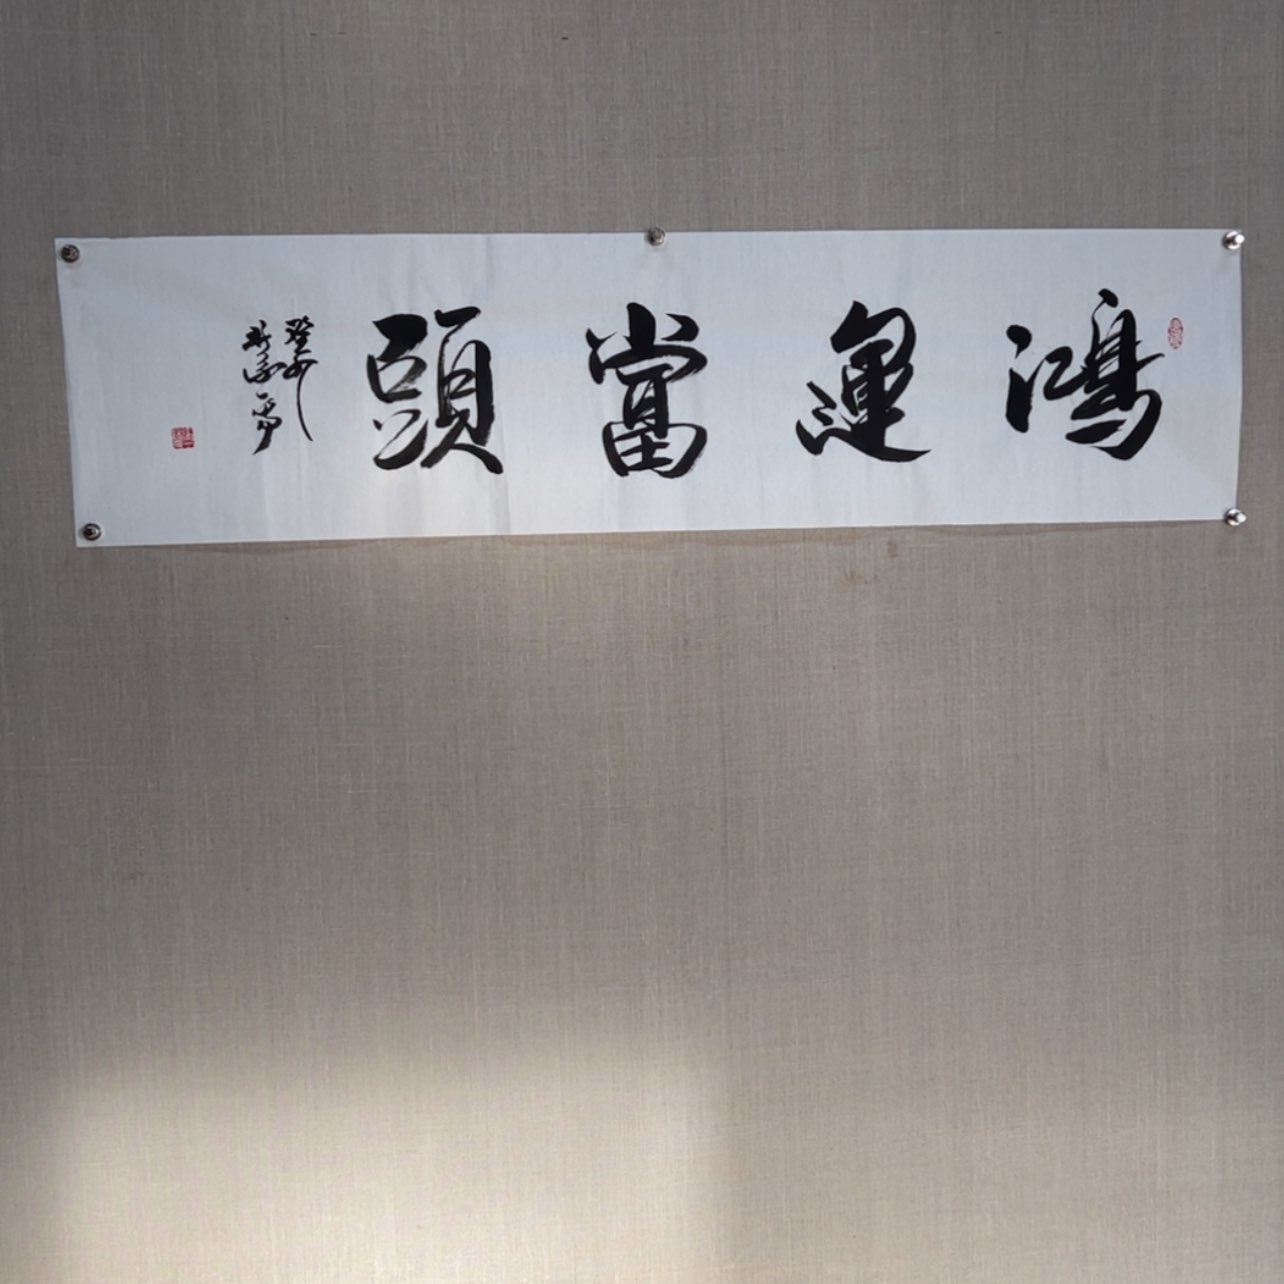 鴻運當頭
癸卯